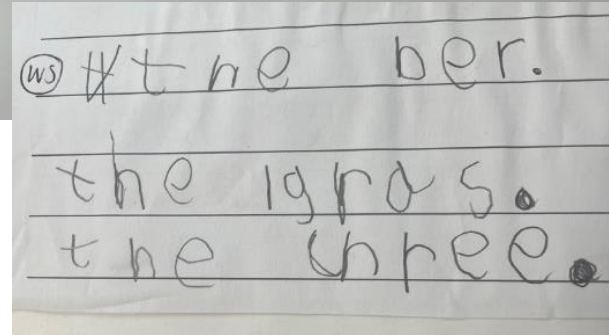 WS the ber.
the igras.
the three.